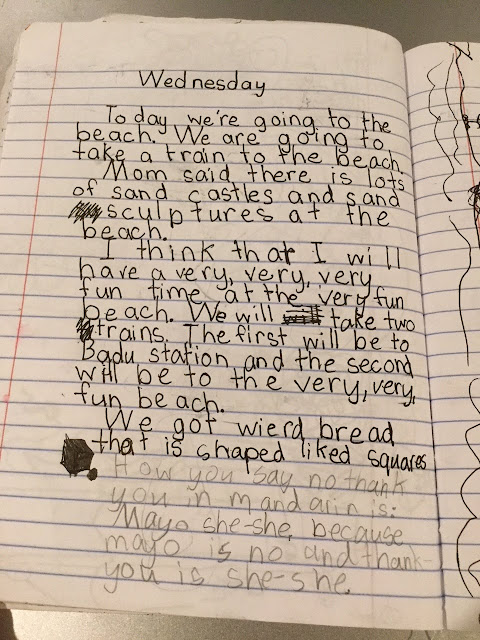 Wednesday
Today we're going to the
beach. We are going to
take a train to the beach.
Mom said there is lots
of sand castles and sand
sculptures at the
beach.
I think that I will
have a very, very, very
fun time at the very fun
beach. We will take two
trains. The first will be to
Badu station and the second
will be to the very, very,
fun beach.
We got wierd bread
that is shaped liked squares
How you say no thank
you in mandarin is:
Mayo she-she, because
mayo is no and thank-
you is she-she.